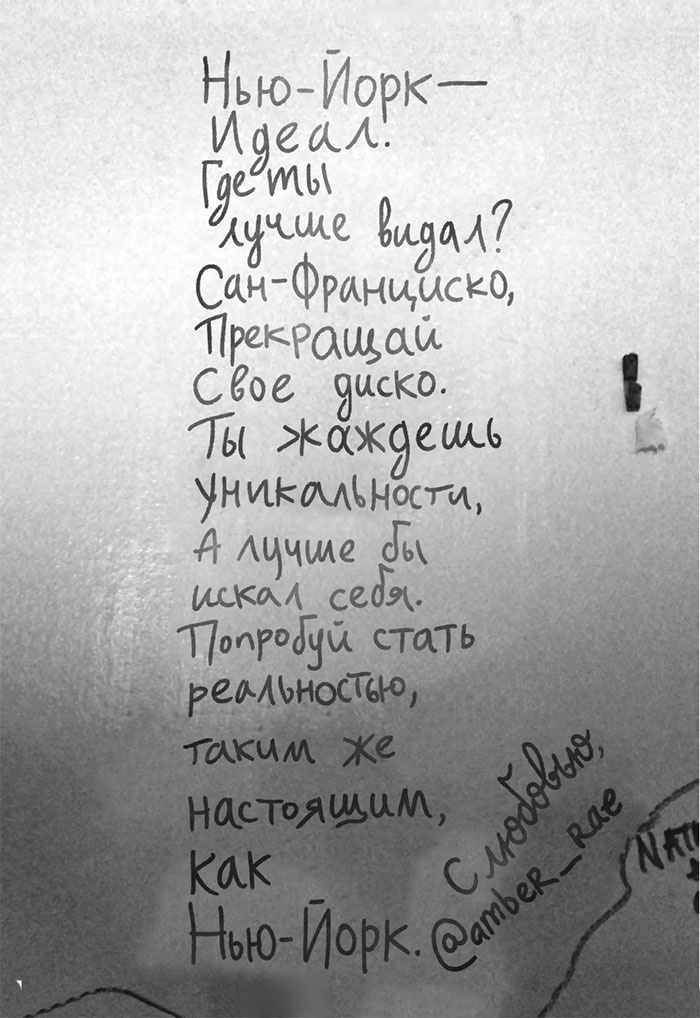 Нью-Йорк—
Идеал.
Где ты
лучше видал?
Сан-Франциско,
Прекращай
Свое диско.
Ты жаждешь
уникальности,
А лучше бы
искал себя.
Попробуй стать
реальностью,
таким же
настоящим,
как
Нью-Йорк.
С любовью,
@amber_Rae